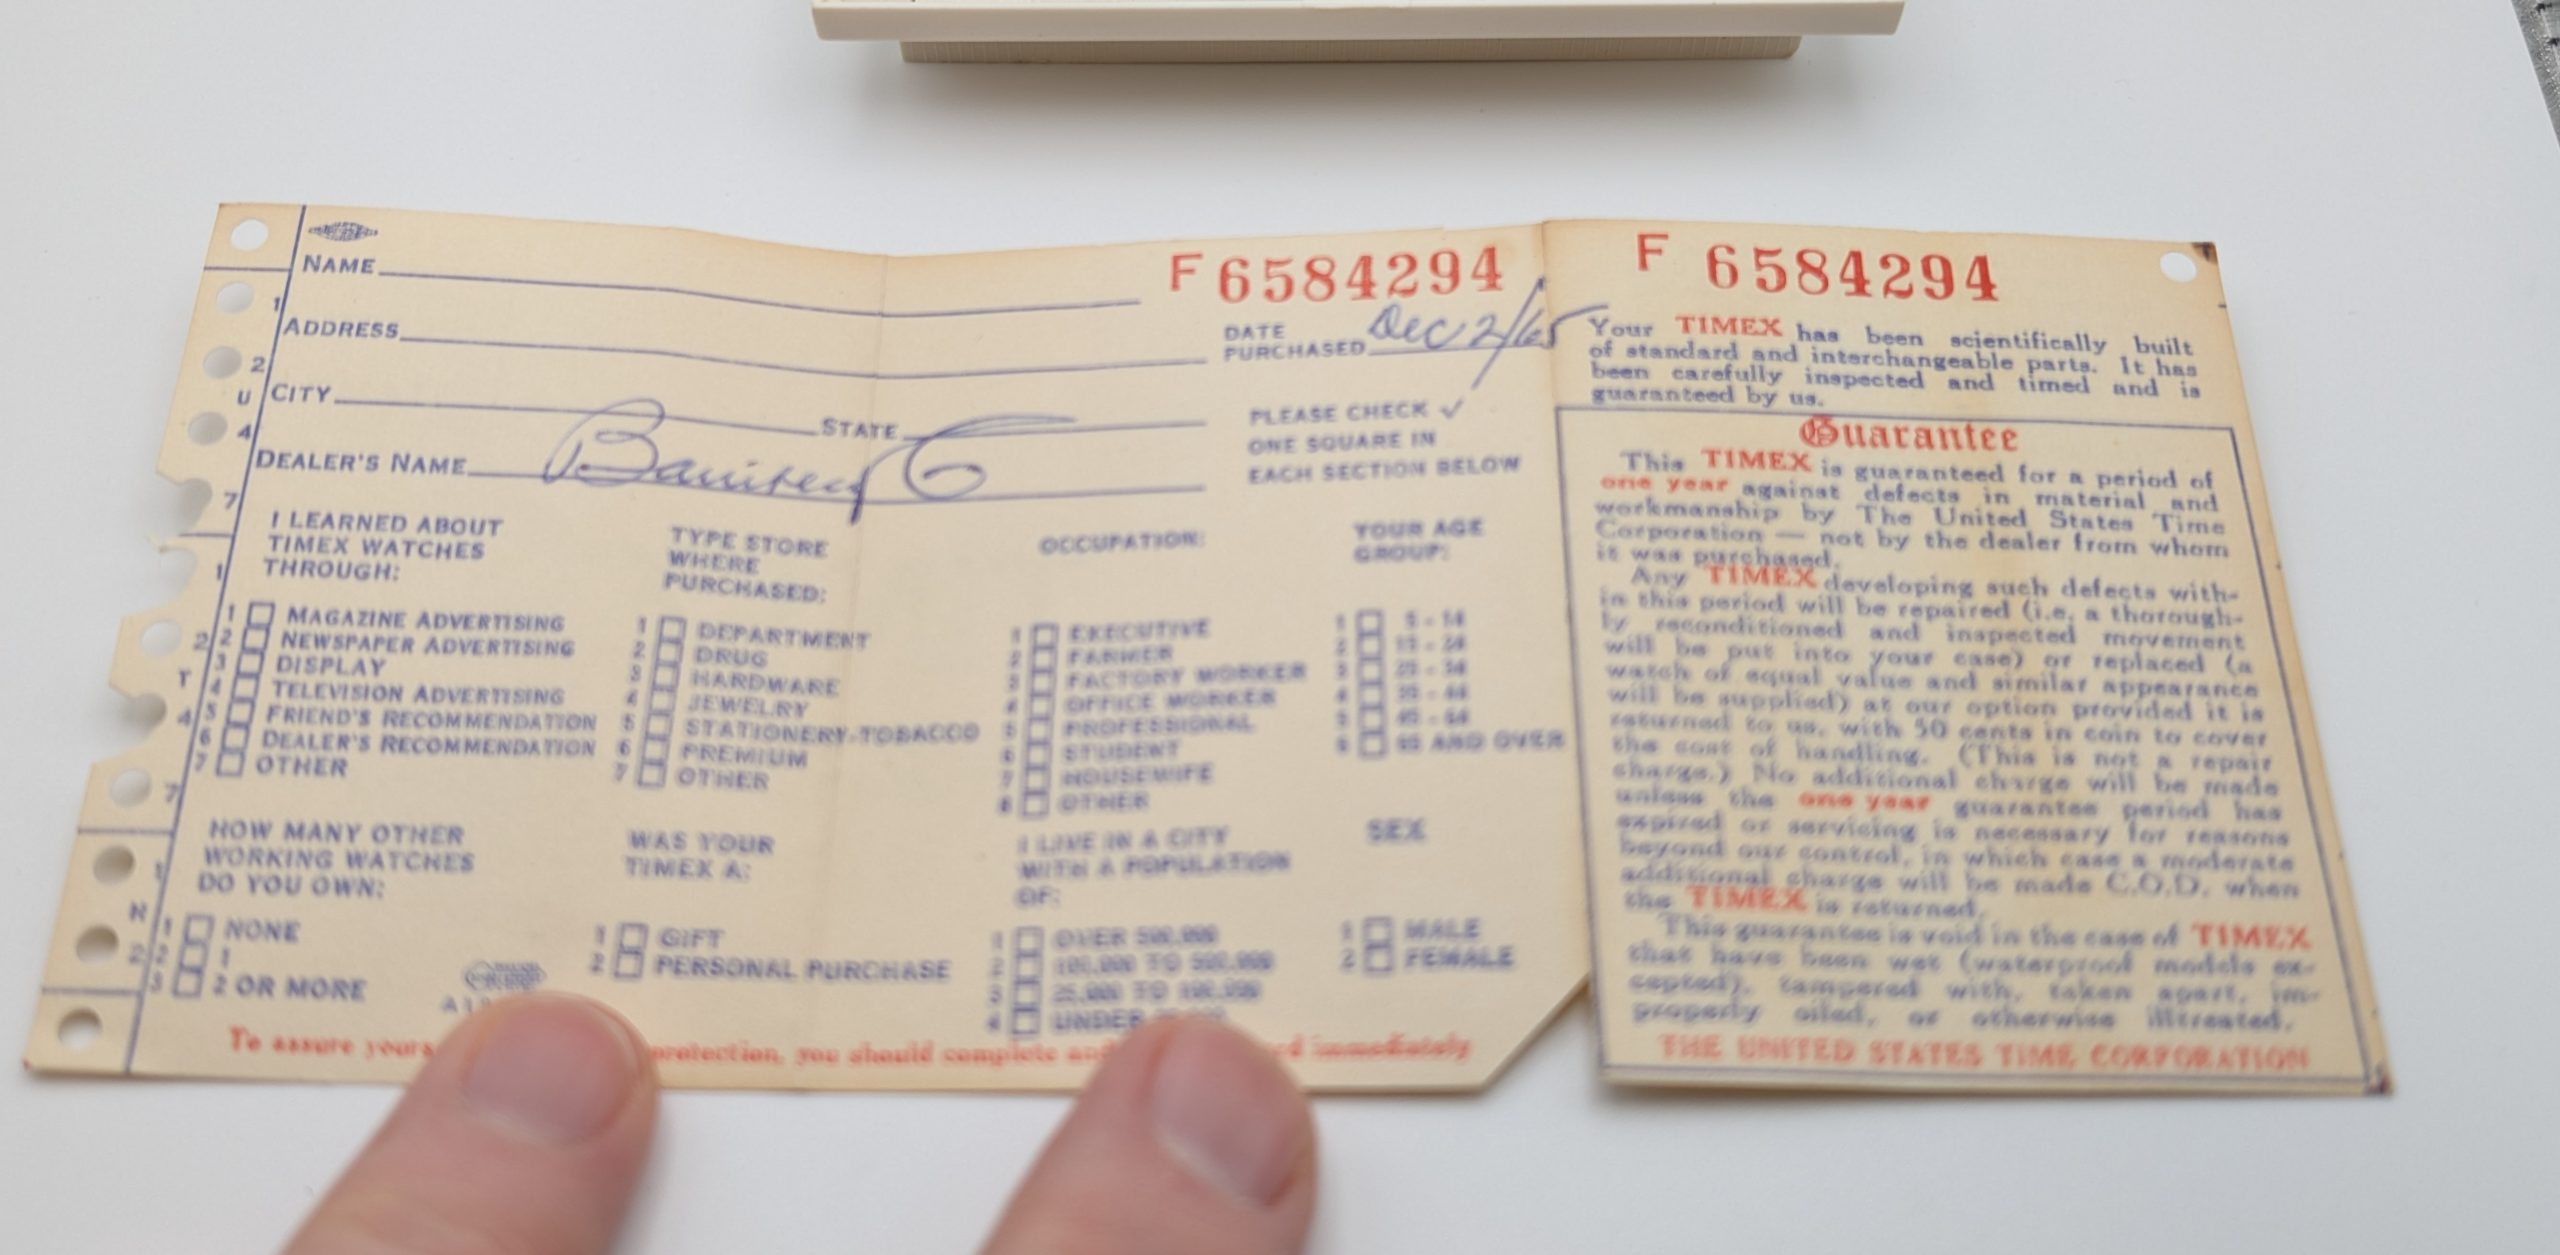 NAME
F 6584294
ADDRESS
DATE
PURCHASED Dec 2/65
CITY
STATE
PLEASE CHECK ✓
ONE SQUARE IN
EACH SECTION BELOW
DEALER'S NAME
I LEARNED ABOUT
TIMEX WATCHES
THROUGH:
1 MAGAZINE ADVERTISING
2 NEWSPAPER ADVERTISING
3 DISPLAY
4 TELEVISION ADVERTISING
5 FRIEND'S RECOMMENDATION
6 DEALER'S RECOMMENDATION
7 OTHER
TYPE STORE
WHERE
PURCHASED:
1 DEPARTMENT
2 DRUG
3 HARDWARE
4 JEWELRY
5 STATIONERY-TOBACCO
6 PREMIUM
7 OTHER
OCCUPATION:
1 EXECUTIVE
2 FARMER
3 FACTORY WORKER
4 OFFICE WORKER
5 PROFESSIONAL
6 STUDENT
7 HOUSEWIFE
8 OTHER
YOUR AGE
GROUP:
1
2
3
4
5
6 AND OVER
HOW MANY OTHER
WORKING WATCHES
DO YOU OWN:
1 NONE
2 1
3 2 OR MORE
WAS YOUR
TIMEX A:
1 GIFT
2 PERSONAL PURCHASE
I LIVE IN A CITY
WITH A POPULATION
OF:
1 OVER 500,000
2 100,000 TO 500,000
3 25,000 TO 100,000
4 UNDER
SEX
1 MALE
2 FEMALE
To assure yours protection, you should complete and immediately
1
2
U
4
7
1
2
T
4
7
1
N
2
F 6584294
Your TIMEX has been scientifically built
of standard and interchangeable parts. It has
been carefully inspected and timed and is
guaranteed by us.
Guarantee
This TIMEX is guaranteed for a period of
one year against defects in material and
workmanship by The United States Time
Corporation — not by the dealer from whom
it was purchased.
Any TIMEX developing such defects with-
in this period will be repaired (i.e. a thorough-
ly reconditioned and inspected movement
will be put into your case) or replaced (a
watch of equal value and similar appearance
will be supplied) at our option provided it is
returned to us, with 50 cents in coin to cover
the cost of handling. (This is not a repair
charge.) No additional charge will be made
unless the one year guarantee period has
expired or servicing is necessary for reasons
beyond our control, in which case a moderate
additional charge will be made C.O.D. when
the TIMEX is returned.
This guarantee is void in the case of TIMEX
that have been wet (waterproof models ex-
cepted), tampered with, taken apart, im-
properly oiled, or otherwise illtreated.
THE UNITED STATES TIME CORPORATION